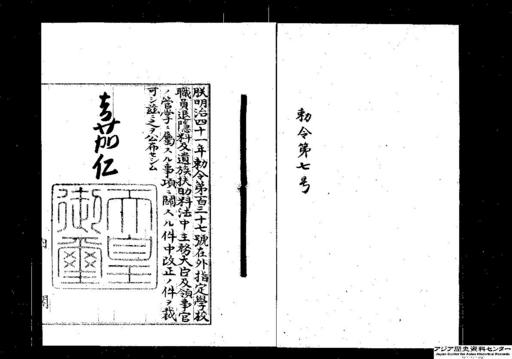 勅令第七号
朕明治四十一年勅令第百三十七號在外指定學校
職員退隱料及遺族扶助料法中主務大臣及領事官
ノ管掌ニ屬スル事項ニ關スル件中改正ノ件ヲ裁
可シ茲ニ之ヲ公布セシム
嘉仁
天皇
御璽
内閣
アジア歴史資料センター
Japan Center for Asian Historical Records